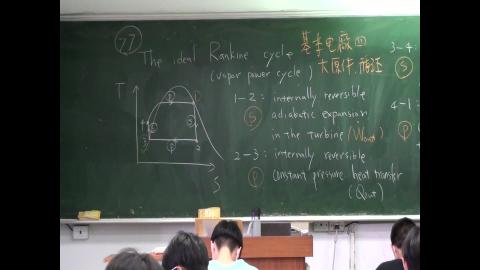 77
The ideal Rankine cycle
(vapor power cycle)
T
S
1
2
3
4
P
P
S
S
1-2: internally reversible
S adiabatic expansion
in the turbine (Wout)
2-3: internally reversible
P constant pressure heat transfer
(Qout)
3-4:
S
4-1:
P